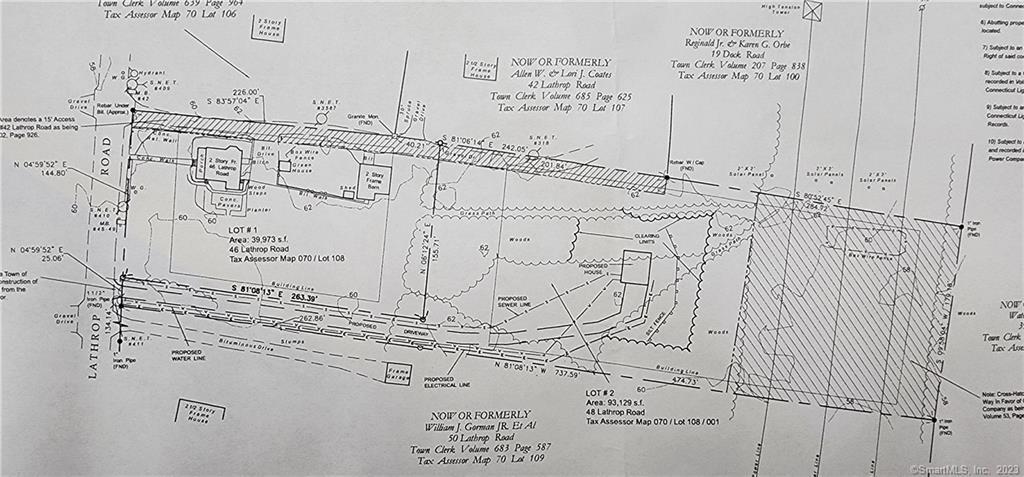 Town Clerk Volume 639 Page 964
Tax Assessor Map 70 Lot 106
2 Story
Frame
House
2 1/2 Story
Frame
House
NOW OR FORMERLY
Allen W. & Lori J. Coates
42 Lathrop Road
Town Clerk Volume 685 Page 625
Tax Assessor Map 70 Lot 107
High Tension
Tower
NOW OR FORMERLY
Reginald Jr. & Karen G. Orbe
19 Dock Road
Town Clerk Volume 207 Page 838
Tax Assessor Map 70 Lot 100
subject to Connec
6) Abutting prope
located.
7) Subject to an
Right of said con
8) Subject to a
recorded in Vol
Connecticut Lig
9) Subject to an
Connecticut Lig
Records.
10) Subject to
and recorded
Power Compan
Hydrant
W G
S.N.E.T.
8409
Gravel
Drive
Rebar Under
Bit. (Approx.)
Area denotes a 15' Access
#42 Lathrop Road as being
02, Page 926.
226.00'
S 83°57'04" E
S.N.E.T.
8387
Granite Mon.
(FND)
40.21'
S 81°06'14" E
242.05'
S.N.E.T.
8318
201.84'
Rebar W/ Cap
(FND)
Solar Panel
Solar Panels
Solar Panels
S 80°52'45" E
284.92'
1" Iron
Pipe
(FND)
ROAD
N 04°59'52" E
144.80'
Conc. Walk
Porch
2 Story Fr.
46 Lathrop
Road
Box Wire
Fence
Green
House
Bit. Walk
Shed
2 Story
Frame
Barn
Wood
Steps
Conc.
Pavers
Planter
Grass Path
Woods
Woods
CLEARING
LIMITS
N 06°12'24" E
155.71'
LOT # 1
Area: 39,973 s.f.
46 Lathrop Road
Tax Assessor Map 070 / Lot 108
PROPOSED
HOUSE
PROPOSED
SEWER LINE
SILT FENCE
Woods
Box Wire Fence
N 04°59'52" E
25.06'
Building Line
S 81°08'13" E 263.39'
262.86'
PROPOSED
DRIVEWAY
1 1/2"
Iron Pipe
(FND)
134.14'
S.N.E.T.
8411
1" Iron
Pipe
(FND)
LATHROP
PROPOSED
WATER LINE
Bituminous Drive
Stumps
Frame
Garage
PROPOSED
ELECTRICAL LINE
N 81°08'13" W 737.59'
Building Line
474.73'
LOT # 2
Area: 93,129 s.f.
48 Lathrop Road
Tax Assessor Map 070 / Lot 108 / 001
2 1/2 Story
Frame
House
NOW OR FORMERLY
William J. Gorman JR. Et Al
50 Lathrop Road
Town Clerk Volume 683 Page 587
Tax Assessor Map 70 Lot 109
Note: Cross-Hatc
Way In Favor of
Company as being
Volume 53, Page
1" Iron
Pipe
(FND)
©SmartMLS, Inc. 2023